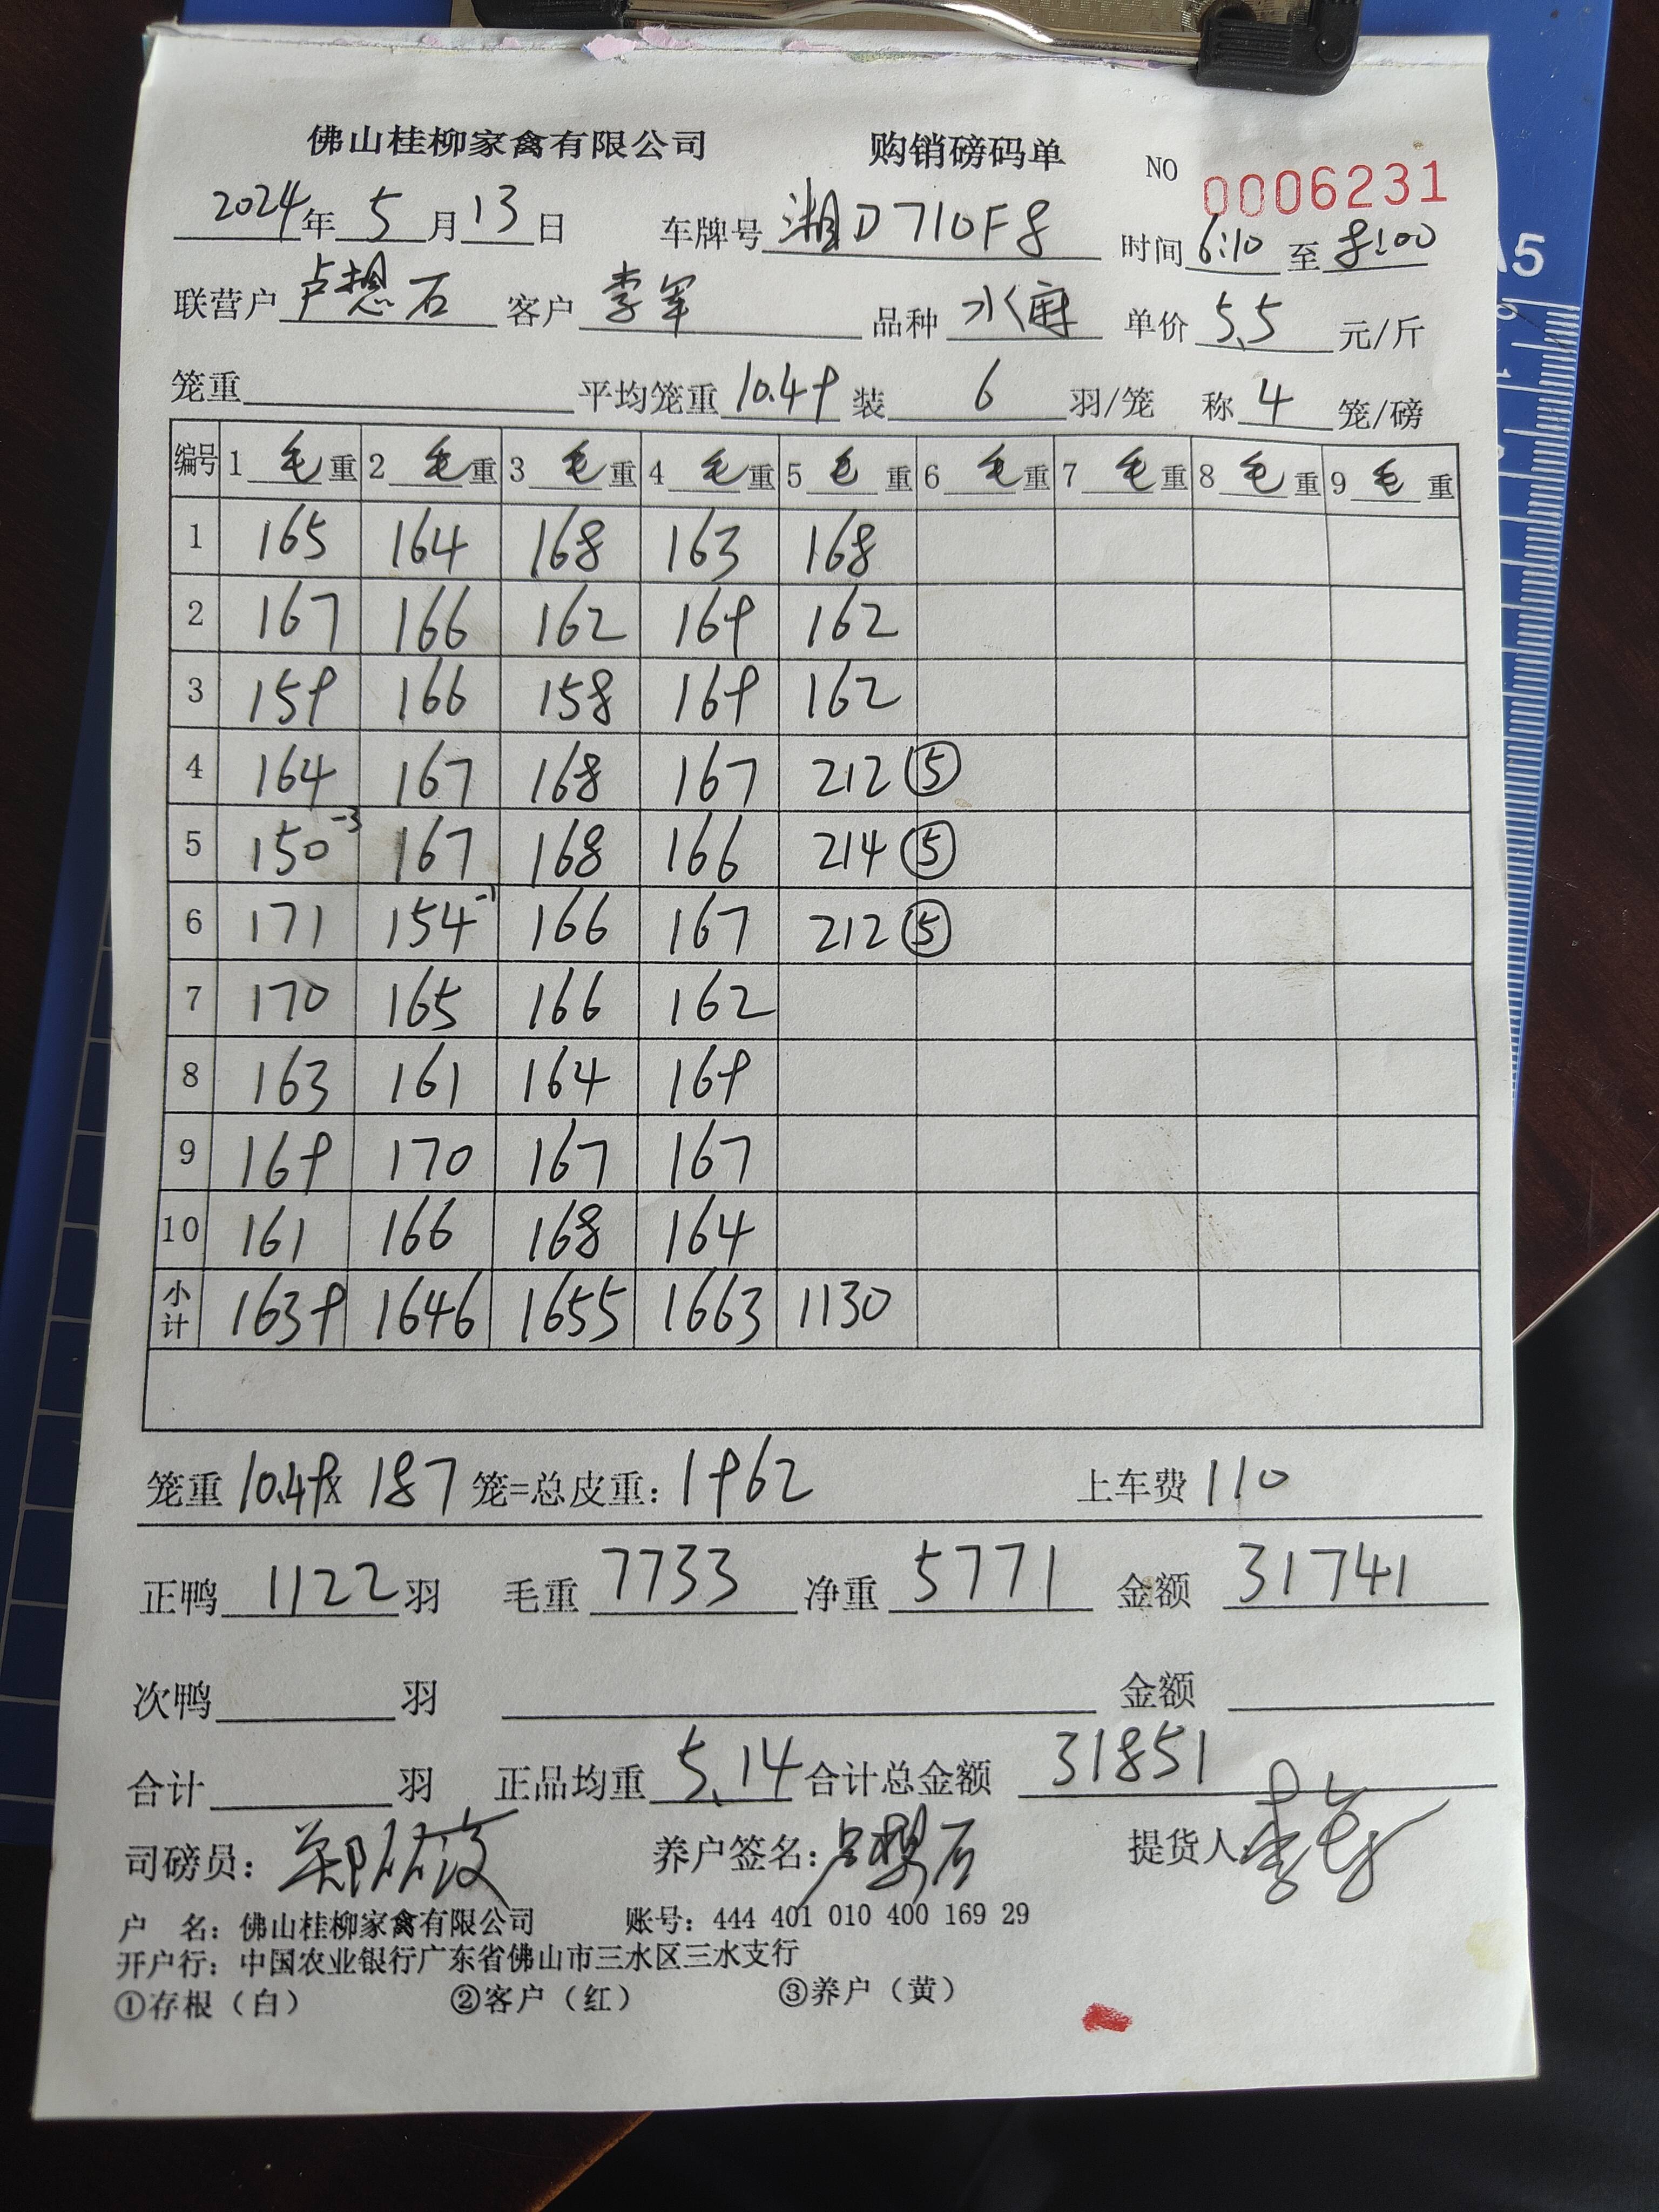 佛山桂柳家禽有限公司 购销磅码单 NO 0006231
2024年5月13日 车牌号 湘D710F8 时间 6:10 至 8:00
联营户 卢想石 客户 李军 品种 水麻 单价 5.5 元/斤
笼重 平均笼重 10.49 装 6 羽/笼 称 4 笼/磅
编号 1 毛重 2 毛重 3 毛重 4 毛重 5 毛重 6 毛重 7 毛重 8 毛重 9 毛重
1 165 164 168 163 168
2 167 166 162 169 162
3 159 166 158 169 162
4 164 167 168 167 212 ⑤
5 150-3 167 168 166 214 ⑤
6 171 154-1 166 167 212 ⑤
7 170 165 166 162
8 163 161 164 169
9 169 170 167 167
10 161 166 168 164
小计 1639 1646 1655 1663 1130
笼重 10.49x 187 笼=总皮重: 1962 上车费 110
正鸭 1122 羽 毛重 7733 净重 5771 金额 31741
次鸭 羽 金额
合计 羽 正品均重 5.14 合计总金额 31851
司磅员: 养户签名: 卢想石 提货人 李军
户 名: 佛山桂柳家禽有限公司 账号: 444 401 010 400 169 29
开户行: 中国农业银行广东省佛山市三水区三水支行
①存根（白） ②客户（红） ③养户（黄）
A5